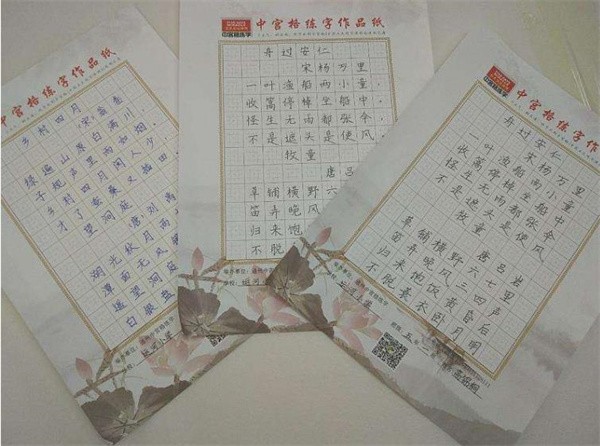 中宫格练字作品纸
乡村四月
宋 翁卷
绿遍山原白满川,
子规声里雨如烟。
乡村四月闲人少,
才了蚕桑又插田
望洞庭
唐 刘禹
湖光秋月两
潭面无风
遥望洞庭
白银盘
中宫格练字作品纸
中宫格练字
舟过安仁
宋 杨万里
一叶渔船两小童,
收篙停棹坐船中
怪生无雨都张伞,
不是遮头是使风。
牧童
唐 吕
草铺横野六
笛弄晚风
归来饱
不脱
学校:
中宫格练字作品纸
舟过安仁
宋 杨万里
一叶渔船两小童
收篙停棹坐船中
怪生无雨都张伞
不是遮头是使风
牧童
唐 吕岩
草铺横野六七里
笛弄晚风三四声
归来饱饭黄昏后
不脱蓑衣卧月明